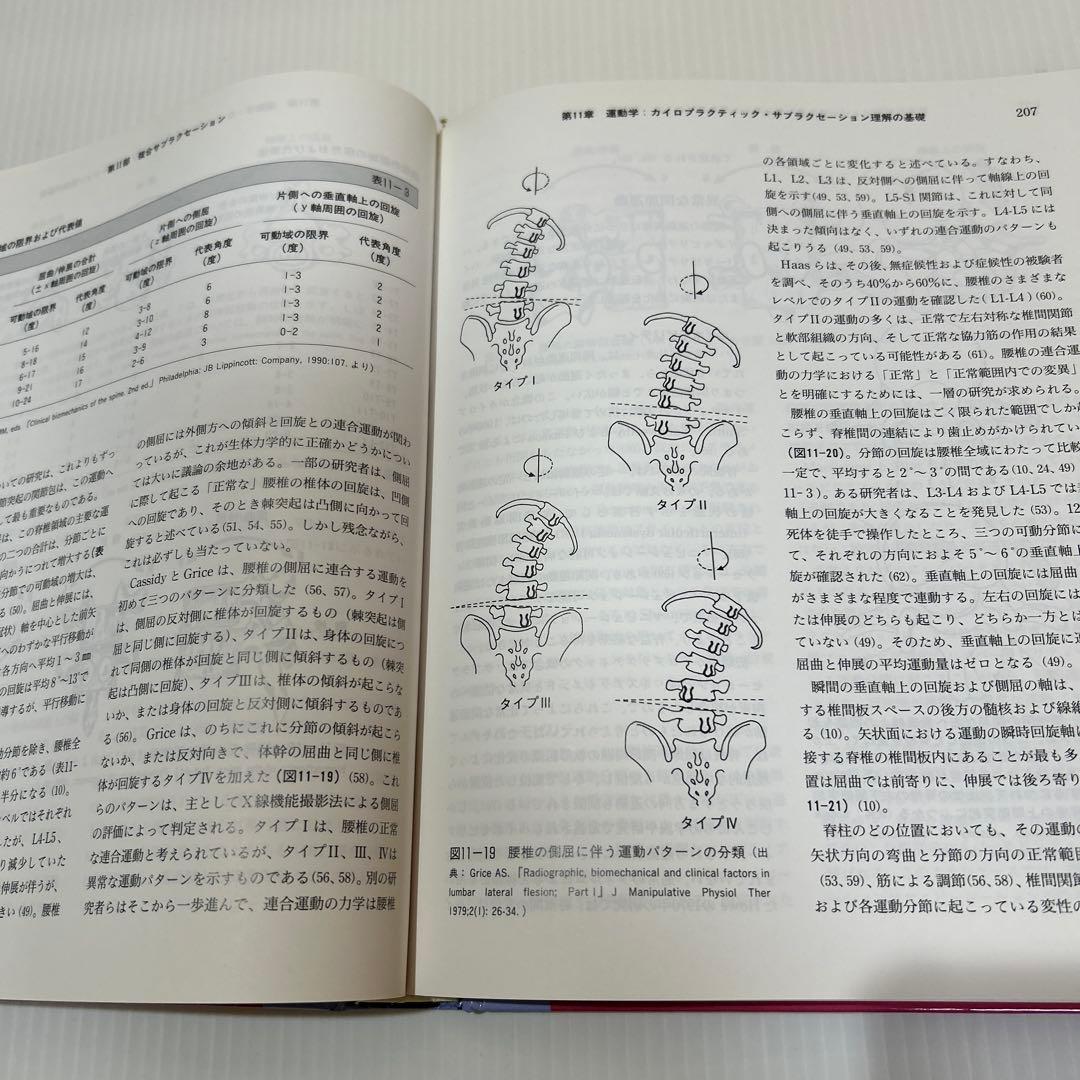 第II部 複合サブラクセーション
表11−3
域の限界および代表値
屈曲/伸展の合計
(±x軸周囲の回旋)
片側への側屈
(z軸周囲の回旋)
片側への垂直軸上の回旋
(y軸周囲の回旋)
可動域の限界
(度)
代表角度
(度)
可動域の限界
(度)
代表角度
(度)
可動域の限界
(度)
代表角度
(度)
5-16 12 3-8 6 1-3 2
8-18 14 3-10 6 1-3 2
6-17 15 4-12 8 1-3 2
9-21 16 3-9 6 1-3 2
10-24 17 2-6 3 0-2 1
M, eds.『Clinical biomechanics of the spine. 2nd ed.』Philadelphia: JB Lippincott: Company, 1990:107. より)
いての研究は、これよりもずっ
節突起の関節包は、この運動へ
して最も重要なものである。
は、この脊椎領域の主要な運
の二つの合計は、分節ごとに
向かうにつれて増大する(表
分節での可動域の増大は、
る(50)。屈曲と伸展には、
冠状)軸を中心とした前矢
へのわずかな平行移動が
各方向へ平均1〜3㎜
の回旋は平均8°〜13°で
導するが、平行移動に
動分節を除き、腰椎全
約6°である(表11-
半分になる(10)。
ベルではそれぞれ
したが、L4-L5、
り減少していた
伸展が伴うが、
きい(49)。腰椎
の側屈には外側方への傾斜と回旋との連合運動が関わ
っているが、これが生体力学的に正確かどうかについ
ては大いに議論の余地がある。一部の研究者は、側屈
に際して起こる「正常な」腰椎の椎体の回旋は、凹側
への回旋であり、そのとき棘突起は凸側に向かって回
旋すると述べている(51, 54, 55)。しかし残念ながら、
これは必ずしも当たっていない。
CassidyとGriceは、腰椎の側屈に連合する運動を
初めて三つのパターンに分類した(56, 57)。タイプI
は、側屈の反対側に椎体が回旋するもの(棘突起は側
屈と同じ側に回旋する)、タイプIIは、身体の回旋につ
れて同側の椎体が回旋と同じ側に傾斜するもの(棘突
起は凸側に回旋)、タイプIIIは、椎体の傾斜が起こらな
いか、または身体の回旋と反対側に傾斜するものであ
る(56)。Griceは、のちにこれに分節の傾斜が起こら
ないか、または反対向きで、体幹の屈曲と同じ側に椎
体が回旋するタイプIVを加えた(図11-19)(58)。これ
らのパターンは、主としてX線機能撮影法による側屈
の評価によって判定される。タイプIは、腰椎の正常
な連合運動と考えられているが、タイプII、III、IVは
異常な運動パターンを示すものである(56、58)。別の研
究者らはそこから一歩進んで、連合運動の力学は腰椎
第11章 運動学:カイロプラクティック・サブラクセーション理解の基礎 207
タイプI
タイプII
タイプIII
タイプIV
図11−19 腰椎の側屈に伴う運動パターンの分類(出
典:Grice AS.『Radiographic, biomechanical and clinical factors in
lumbar lateral flesion; Part I』J Manipulative Physiol Ther
1979;2(1): 26-34. )
の各領域ごとに変化すると述べている。すなわち、
L1、L2、L3は、反対側への側屈に伴って軸線上の回
旋を示す(49, 53, 59)。L5-S1関節は、これに対して同
側への側屈に伴う垂直軸上の回旋を示す。L4-L5には
決まった傾向はなく、いずれの連合運動のパターンも
起こりうる(49, 53, 59)。
Haasらは、その後、無症候性および症候性の被験者
を調べ、そのうち40%から60%に、腰椎のさまざまな
レベルでのタイプIIの運動を確認した(L1-L4)(60)。
タイプIIの運動の多くは、正常で左右対称な椎間関節
と軟部組織の方向、そして正常な協力筋の作用の結果
として起こっている可能性がある(61)。腰椎の連合運
動の力学における「正常」と「正常範囲内での変異」
とを明確にするためには、一層の研究が求められる。
腰椎の垂直軸上の回旋はごく限られた範囲でしか
こらず、脊椎間の連結により歯止めがかけられてい
(図11-20)。分節の回旋は腰椎全域にわたって比較
一定で、平均すると2°〜3°の間である(10、24、49)
11-3)。ある研究者は、L3-L4およびL4-L5では
軸上の回旋が大きくなることを発見した(53)。12
死体を徒手で操作したところ、三つの可動分節に
て、それぞれの方向におよそ5°〜6°の垂直軸上
旋が確認された(62)。垂直軸上の回旋には屈曲
がさまざまな程度で連動する。左右の回旋には
たは伸展のどちらも起こり、どちらか一方とは
ていない(49)。そのため、垂直軸上の回旋に
屈曲と伸展の平均運動量はゼロとなる(49)。
瞬間の垂直軸上の回旋および側屈の軸は、
する椎間板スペースの後方の髄核および線維
る(10)。矢状面における運動の瞬時回旋軸は
接する脊椎の椎間板内にあることが最も多
置は屈曲では前寄りに、伸展では後ろ寄り
11-21)(10)。
脊柱のどの位置においても、その運動の
矢状方向の弯曲と分節の方向の正常範囲
(53、59)、筋による調節(56、58)、椎間関節
および各運動分節に起こっている変性の